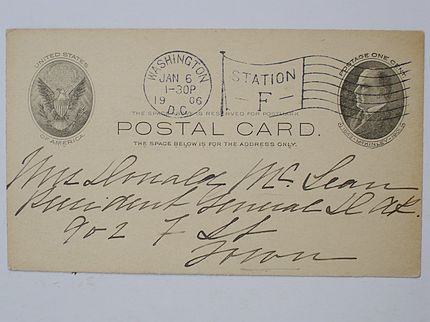 UNITED STATES
OF AMERICA
WASHINGTON
JAN 6
1-30P
1906
D.C.
STATION
F
POSTAGE ONE CENT
1843-McKINLEY-1901
THE SPACE ABOVE IS RESERVED FOR POSTMARK
POSTAL CARD.
THE SPACE BELOW IS FOR THE ADDRESS ONLY.
Mrs Donald Mc Lean
President General D.A.R.
902 F St
Town